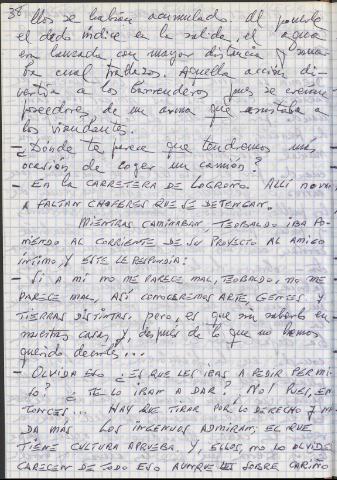 38 llos se habían acumulado. Al ponerle
el dedo índice en la salida, el agua
era lanzada con mayor distancia y sonar
ba cual trallazos. Aquella acción di-
vertía a los barrenderos pues se creían
poseedores de un arma que asustaba a
los viandantes.
- ¿Dónde te parece que tendremos más
ocasión de coger un camión?
- EN LA CARRETERA DE LOGROÑO. ALLÍ NUNCA
FALTAN CHOFERES QUE SE DETENGAN.
MIENTRAS CAMINABAN, TEOBALDO IBA PO-
NIENDO AL CORRIENTE DE SU PROYECTO AL AMIGO
ÍNTIMO, Y ESTE LE RESPONDÍA:
- SI A MI NO ME PARECE MAL, TEOBALDO, NO ME
PARECE MAL, ASÍ CONOCEREMOS ARTE, GENTES Y
TIERRAS DISTINTAS, pero, es que sin saberlo en
nuestras casas, y, después de lo que no hemos
querido decirles...
- OLVIDA ESO ¿ES QUE LES IBAS A PEDIR PERMI-
SO? ¿TE LO IBAN A DAR? ¡NO! PUES, EN-
TONCES... HAY QUE TIRAR POR LO DERECHO Y NA-
DA MAS LOS INGENUOS ADMIRAN; EL QUE
TIENE CULTURA APRUEBA. Y, ELLOS, NO LO OLVIDES
CARECEN DE TODO ESO AUNQUE LES SOBRE CARIÑO